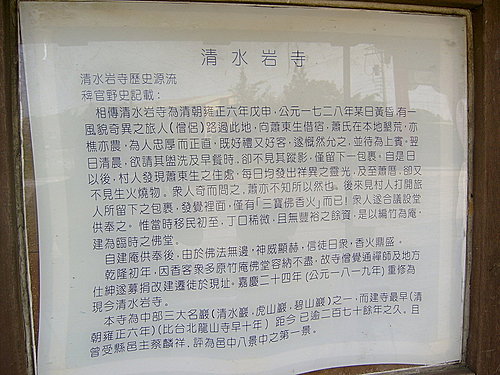 清水岩寺
清水岩寺歷史源流
稗官野史記載：
相傳清水岩寺為清朝雍正六年戊申，公元一七二八年某日黃昏，有一
風貌奇異之旅人(僧侶)路過此地，向蕭東生借宿，蕭氏在本地墾荒，亦
樵亦農，為人忠厚而正直，既好禮又好客，遂慨然允之，並待為上賓，翌
日清晨，欲請其盥洗及早餐時，卻不見其蹤影，僅留下一包裹，自是日
以後，村人發現蕭東生之住處，每日均發出祥異之靈光，及至蕭厝，卻又
不見生火燒物。衆人奇而問之，蕭亦不知所以然也。後來見村人打開旅
人所留下之包裹，發覺裡面，僅有「三寶佛香火」而已！衆人遂合議設堂
供奉之。惟當時移民初至，丁口稀微，且無豐裕之餘資，是以編竹為庵，
建為臨時之佛堂。
自建庵供奉後，由於佛法無邊，神威顯赫，信徒日衆，香火鼎盛。
乾隆初年，因香客衆多原竹庵佛堂容納不盡，故寺僧覺通禪師及地方
仕紳遂募捐改建遷徙於現址。嘉慶二十四年(公元一八一九年)重修為
現今清水岩寺。
本寺為中部三大名巖(清水巖，虎山巖，碧山巖)之一，而建寺最早(清
朝雍正六年)(比台北龍山寺早十年) 距今已逾二百七十餘年之久。且
曾受縣邑主秦麟祥，評為邑中八景中之第一景。